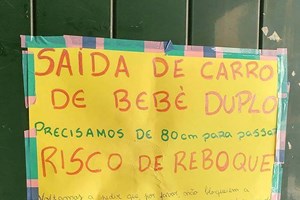 SAÍDA DE CARRO
DE BEBÊ DUPLO
PRECISAMOS DE 80cm PARA PASSAR
RISCO DE REBOQUE
Voltamos a pedir que por favor não bloqueiem a